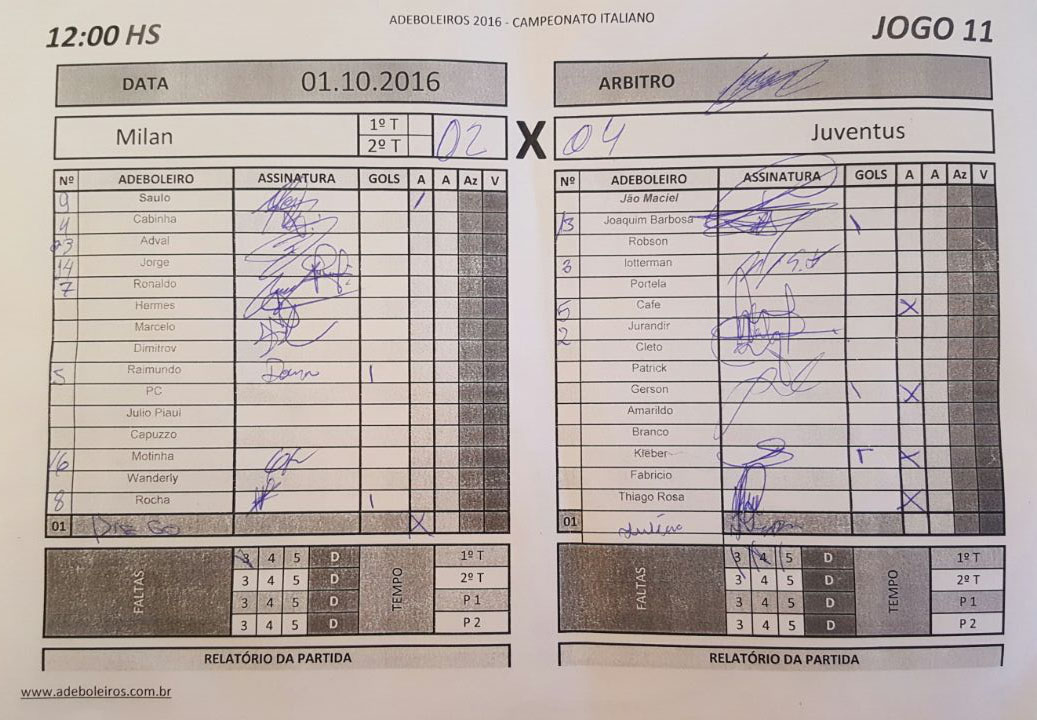 ADEBOLEIROS 2016 - CAMPEONATO ITALIANO
12:00 HS
JOGO 11
DATA 01.10.2016
ARBITRO
Milan 1º T 2º T 02 X 04 Juventus
Nº ADEBOLEIRO ASSINATURA GOLS A A Az V
9 Saulo /
4 Cabinha
Adval
14 Jorge
7 Ronaldo
Hermes
Marcelo
Dimitrov
5 Raimundo 1
PC
Julio Piaui
Capuzzo
16 Motinha
Wanderly
8 Rocha 1
01 X
FALTAS TEMPO
3 4 5 D 1º T
3 4 5 D 2º T
3 4 5 D P 1
3 4 5 D P 2
RELATÓRIO DA PARTIDA
Nº ADEBOLEIRO ASSINATURA GOLS A A Az V
Jão Maciel
13 Joaquim Barbosa \
Robson
3 Iotterman
Portela
5 Cafe X
2 Jurandir
Cleto
Patrick
Gerson \ X
Amarildo
Branco
Kleber X
Fabricio
Thiago Rosa X
01
FALTAS TEMPO
3 4 5 D 1º T
3 4 5 D 2º T
3 4 5 D P 1
3 4 5 D P 2
RELATÓRIO DA PARTIDA
www.adeboleiros.com.br